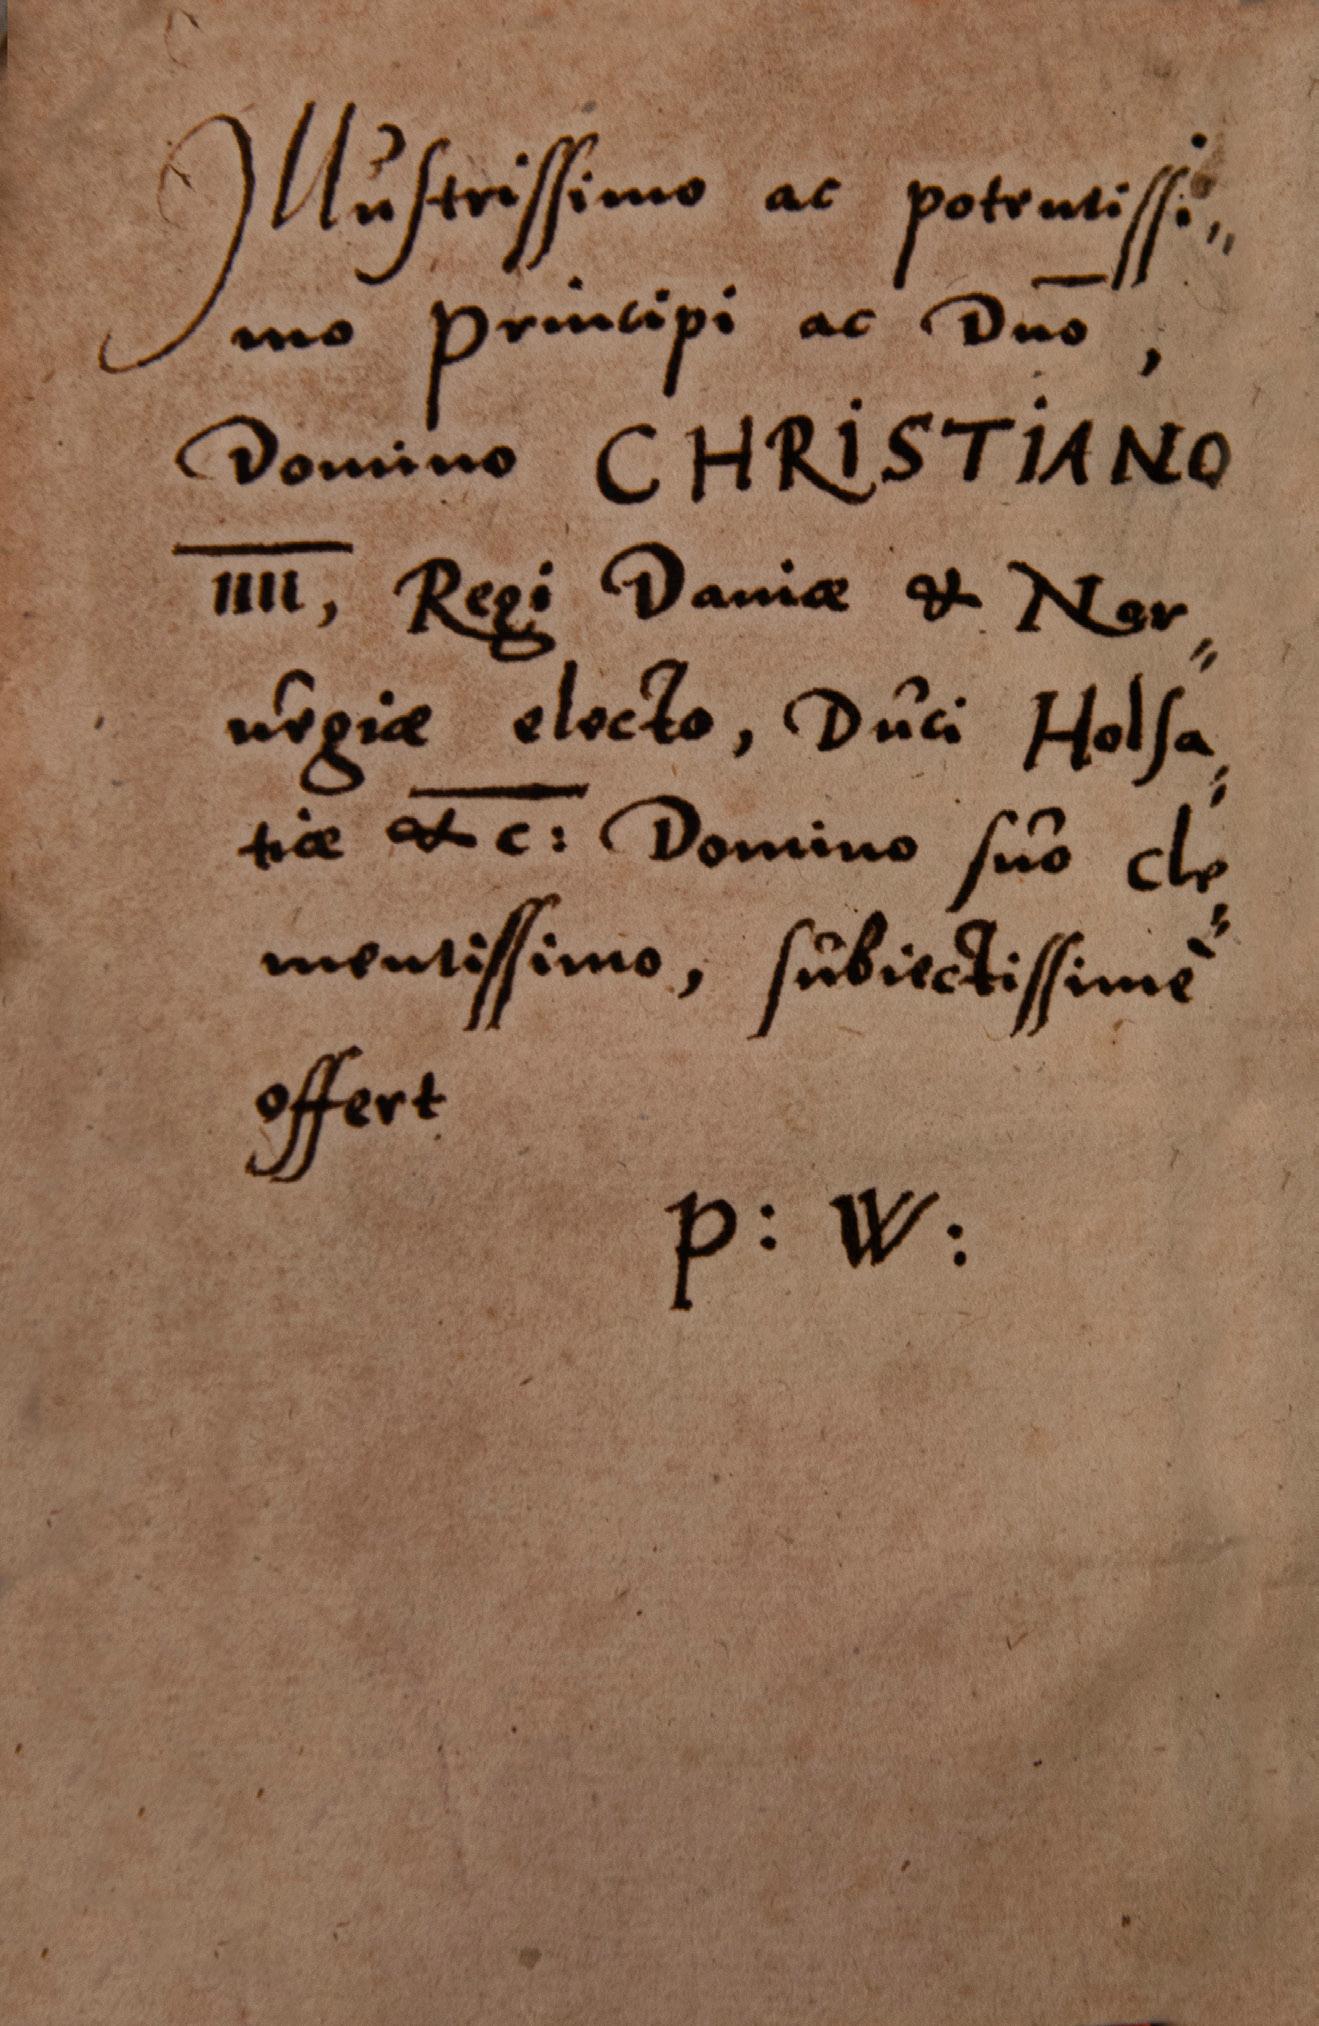 Illustrissimo ac potentissi=
mo Principi ac Dn̄o,
Domino CHRISTIANO
I̅I̅I̅I̅, Regi Daniæ & Nor=
uegiæ electo, Duci Holsa=
tiæ &c: Domino suo cle=
mentissimo, subiectissimè
offert
P: W: